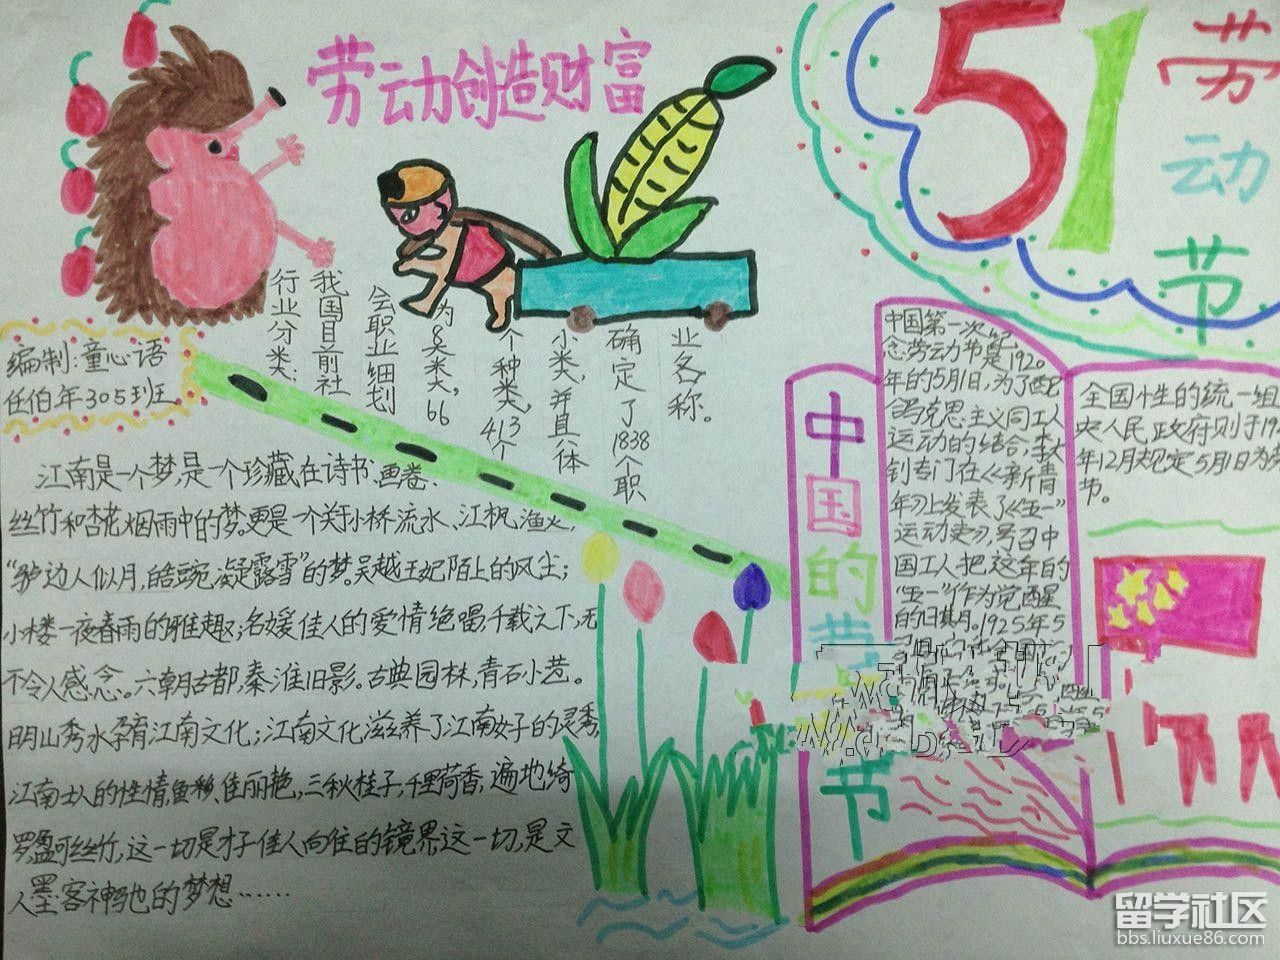 劳动创造财富
51
劳动节
编制:童心语
任伯年305班
行业分类:
我国目前社
会职业细划
为8类大,66
个种类,413个
小类,并具体
确定了1838个职
业名称。
江南是一个梦,是一个珍藏在诗书、画卷、
丝竹和杏花烟雨中的梦。更是一个关于小桥流水、江枫渔火,
“垆边人似月,皓腕凝露雪”的梦。吴越王妃陌上的风尘;
小楼一夜春雨的雅趣;名媛佳人的爱情绝唱,千载之下,无
不令人感念。六朝古都,秦淮旧影。古典园林,青石小巷。
明山秀水孕育江南文化;江南文化滋养了江南女子的灵秀,
江南士人的性情鱼 佳丽艳,三秋桂子,千里荷香,遍地绮
罗盈 丝竹,这一切是才子佳人向往的镜界这一切,是文
人墨客神驰的梦想……
中国的劳 节
中国第一次纪
念劳动节是1920
年的5月1日,为了配
合马克思主义同工人
运动的结合,李大
钊专门在《新青
年》上发表了《“五一”
运动史》,号召中
国工人把这年的
“五一”作为觉醒
的日期。1925年5
全国性的统一组
央人民政府则于19
年12月规定5月1日为劳
节。
留学社区
bbs.liuxue86.com